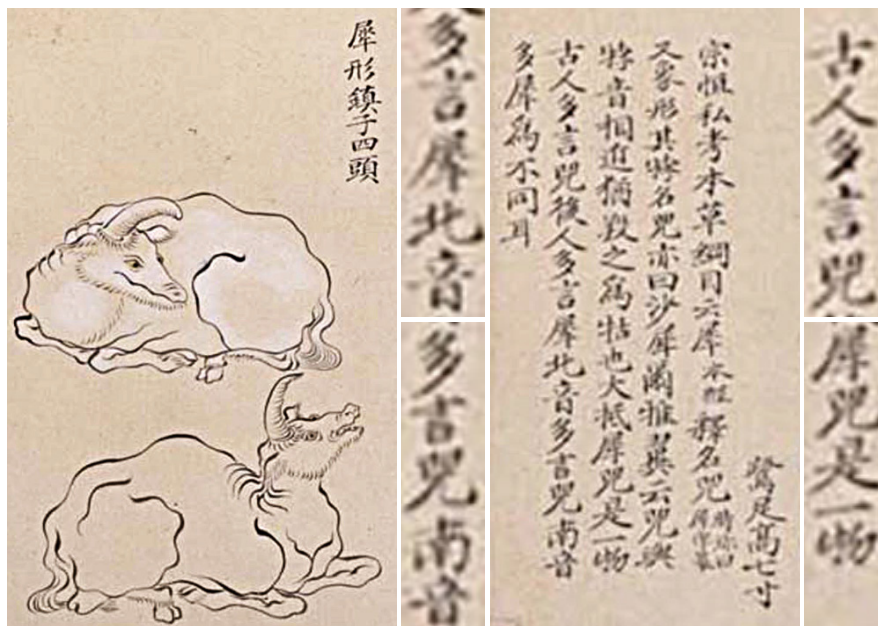 犀形鎮子四頭
多言犀北音
多言兕南音
足高七寸
宗恒私考本草綱目云犀本經釋名兕時珍曰犀字篆
文象形其牸名兕亦曰沙犀爾雅翼云兕與
牸音相近猶羖之爲牯也大抵犀兕是一物
古人多言兕後人多言犀北音多言兕南音
多犀爲不同耳
古人多言兕
犀兕是一物